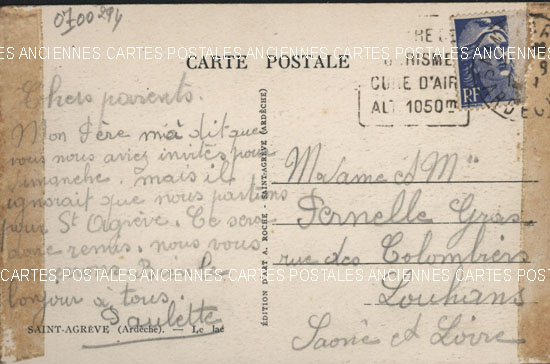 0700294
CARTE POSTALE
TOURISME
CURE D'AIR
ALT 1050m
RF
ARDECHE
Chers parents.
Mon Père m'a dit que
vous nous aviez invités pour
dimanche. mais il
ignorait que nous partons
pour St Agrève. Ce sera
donc remis. nous vous
bonjour à tous.
Paulette
SAINT-AGRÈVE (Ardèche). — Le lac
ÉDITION D'ART A. ROCHE - SAINT-AGRÈVE (ARDÈCHE)
Madame et Mr
Pernelle Gras
rue des Colombiers
Louhans
Saone et Loire
POSTALES ANCIENNES CARTES POSTALES ANCIENNES CARTES POSTALES ANCIENNES
CARTES POSTALES ANCIENNES CARTES POSTALES ANCIENNES CARTES POSTALES